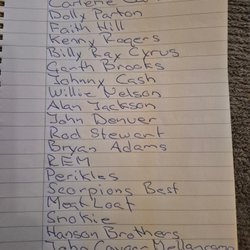 Carlene Carter
Dolly Parton
Faith Hill
Kenny Rogers
Billy Ray Cyrus
Garth Brooks
Johnny Cash
Willie Nelson
Alan Jackson
John Denver
Rod Stewart
Bryan Adams
REM
Perikles
Scorpions Best
Meat Loaf
Smokie
Hanson Brothers
John Cougar Mellancamp